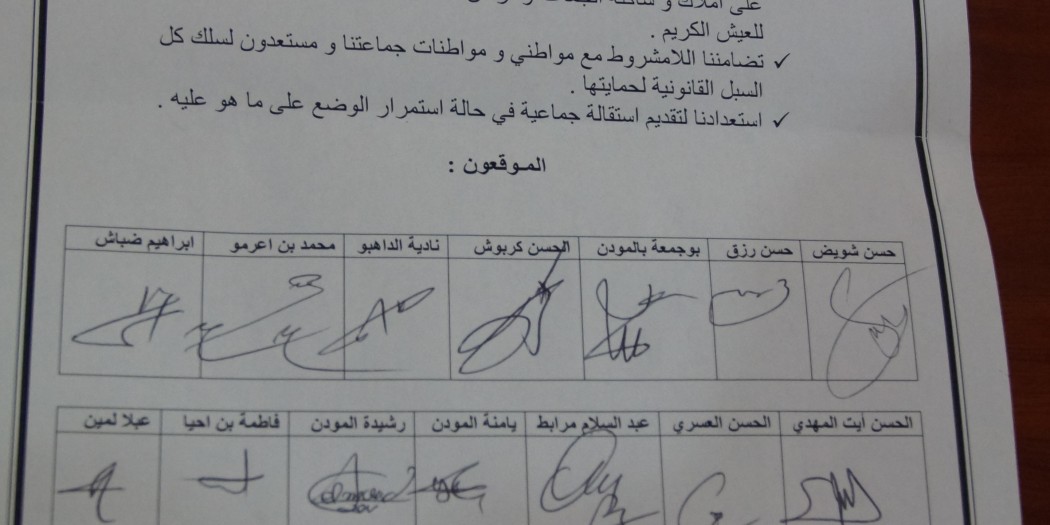 على أملاك و ساكنة
للعيش الكريم .
✓ تضامننا اللامشروط مع مواطني و مواطنات جماعتنا و مستعدون لسلك كل
السبل القانونية لحمايتها .
✓ استعدادنا لتقديم استقالة جماعية في حالة استمرار الوضع على ما هو عليه .
الموقعون :
حسن شويض حسن رزق بوجمعة بالمودن الحسن كربوش نادية الداهبو محمد بن اعرمو ابراهيم ضباش
الحسن أيت المهدي الحسن العسري عبد السلام مرابط يامنة المودن رشيدة المودن فاطمة بن احيا عبلا لمين